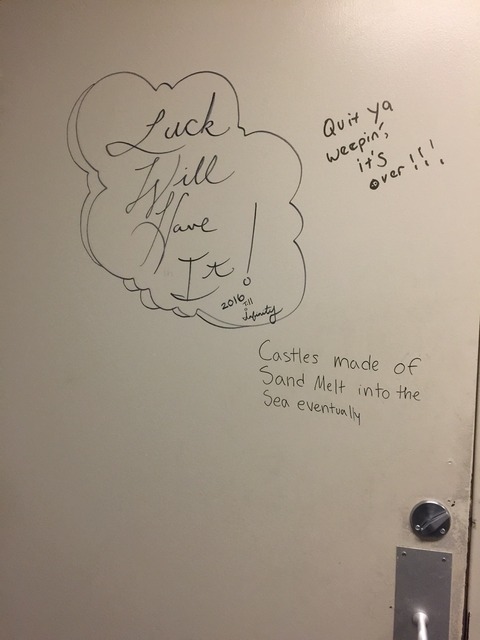 Luck
Will
Have
It!
2016
till
infinity
Quit ya
weepin',
it's
over!!!!
Castles made of
Sand Melt into the
Sea eventually